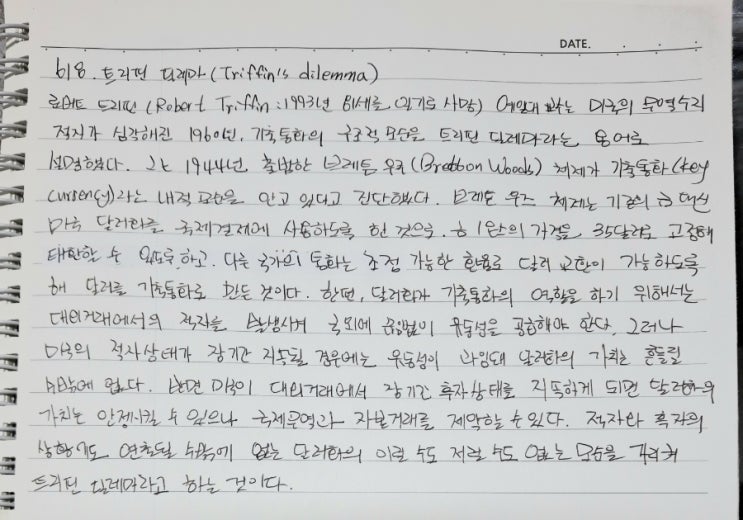 DATE.
618. 트리핀 딜레마 (Triffin's dilemma)
로버트 트리핀 (Robert Triffin : 1993년 81세를 일기로 사망) 예일대 교수는 미국의 무역수지
적자가 심각해진 1960년, 기축통화의 구조적 모순을 트리핀 딜레마라는 용어로
설명했다. 그는 1944년, 출범한 브레튼 우즈 (Bretton Woods) 체제가 기축통화 (key
currency)라는 내적 모순을 안고 있다고 진단했다. 브레튼 우즈 체제는 기존의 금 대신
미국 달러화를 국제결제에 사용하도록 한 것으로, 금 1온스의 가격을 35달러로 고정해
태환할 수 있도록 하고, 다른 국가의 통화는 조정 가능한 환율로 달러 교환이 가능하도록
해 달러를 기축통화로 만든 것이다. 한편, 달러화가 기축통화의 역할을 하기 위해서는
대외거래에서의 적자를 발생시켜 국외에 끊임없이 유동성을 공급해야 한다. 그러나
미국의 적자상태가 장기간 지속될 경우에는 유동성이 과잉돼 달러화의 가치는 흔들릴
수밖에 없다. 반면 미국이 대외거래에서 장기간 흑자상태를 지속하게 되면 달러화의
가치는 안정시킬 수 있으나 국제무역과 자본거래를 제약할 수 있다. 적자와 흑자의
상황에도 연출될 수밖에 없는 달러화의 이럴 수도 저럴 수도 없는 모순을 가리켜
트리핀 딜레마라고 하는 것이다.